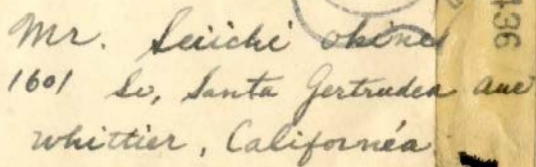 Mr. Seiichi Okine
1601 So, Santa Gertrudes ave
Whittier, California
436